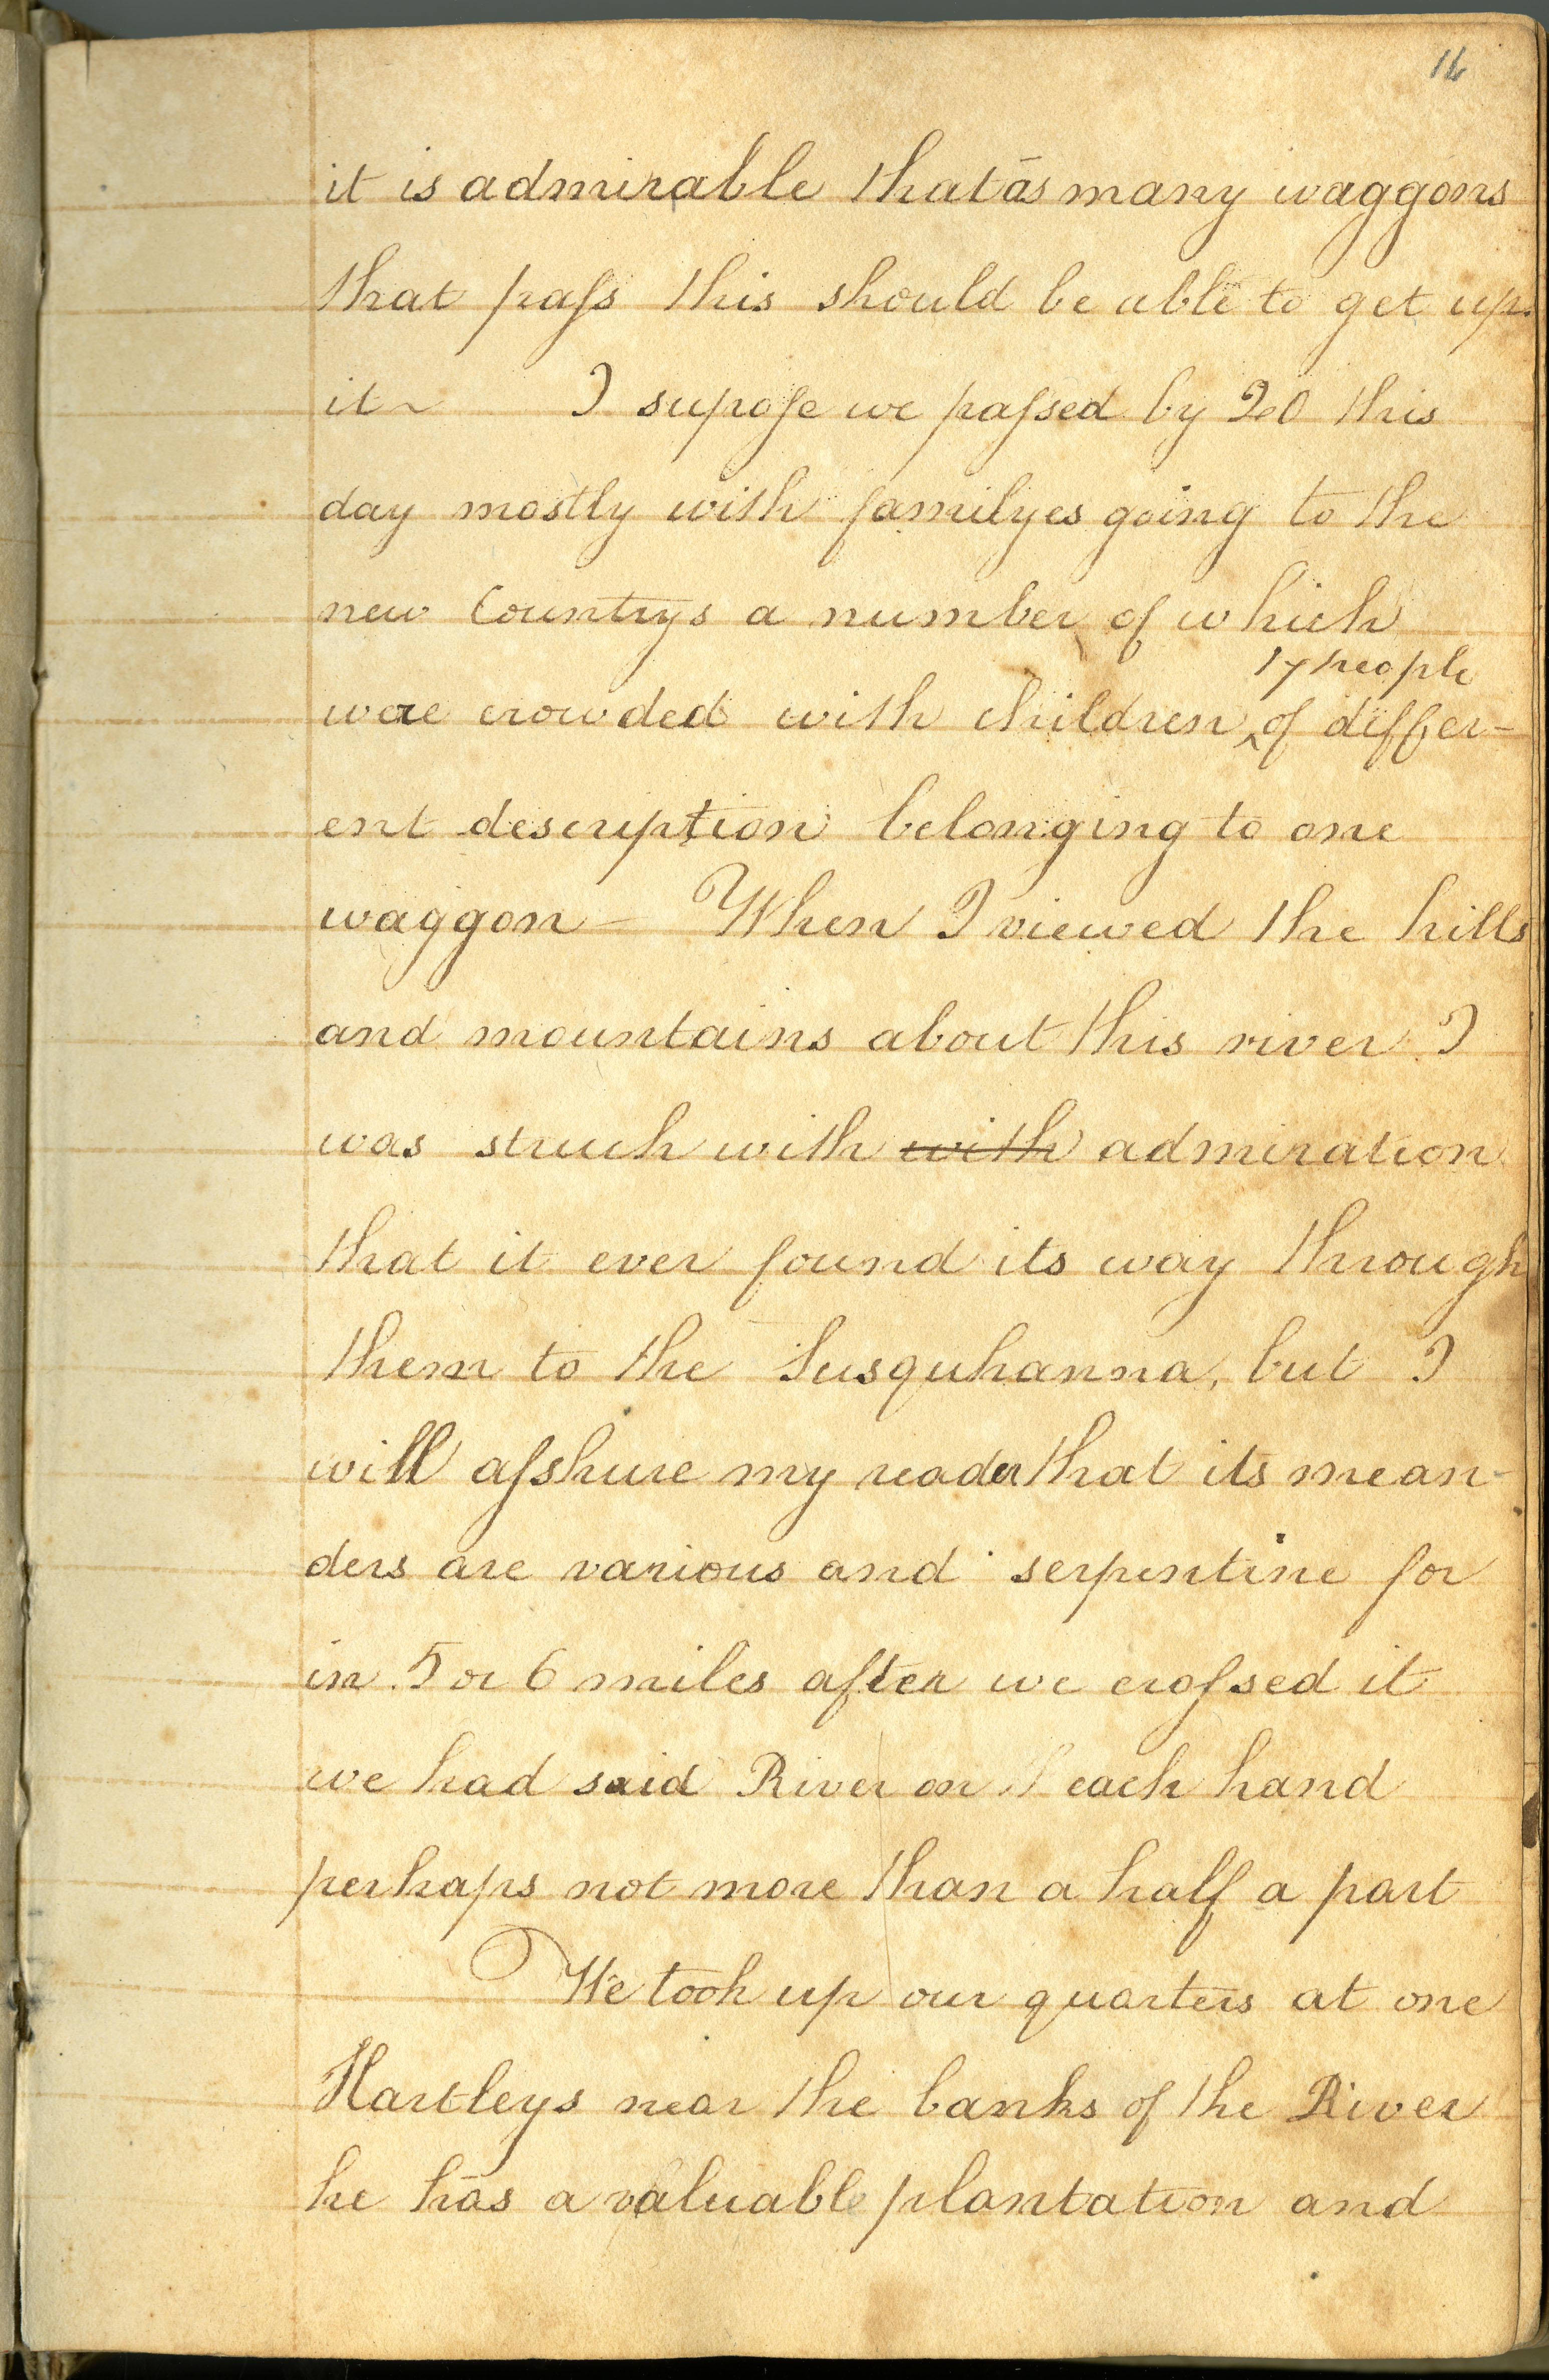 16
it is admirable that as many waggons
that pass this should be able to get up
it ~ I supose we passed by 20 this
day mostly with familyes going to the
new Countrys a number of which
17 people
were crowded with children ^ of differ-
ent description belonging to one
waggon - When I viewed the hills
and mountains about this river I
was struck with with admiration
that it ever found its way through
them to the Susquhanna, but I
will asshure my reader that its mean-
ders are various and serpentine for
in 5 or 6 miles after we crossed it
we had said River on each hand
perhaps not more than a half a part
We took up our quarters at one
Hartleys near the banks of the River
he has a valuable plantation and